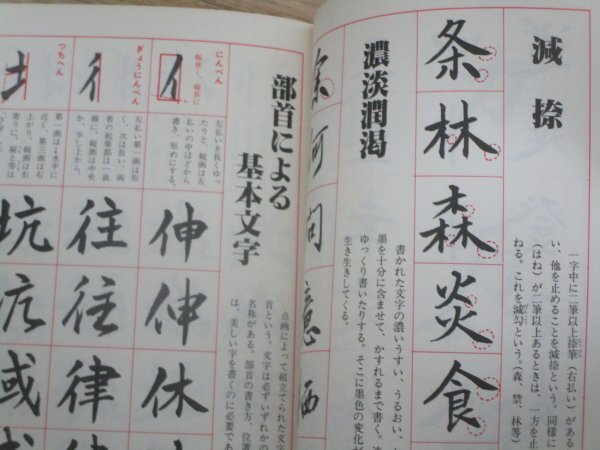 減捺
一字中に二筆以上捺筆(右払い)がある
い、他を止めることを減捺という。同様に
(はね)が二筆以上あるときは、一方を止
ねる。これを減勾という。(森、禁、林等)
条
林
森
炎
食
濃淡潤渇
書かれた文字の濃いうすい、うるおい、
墨を十分に含ませて、かすれるまで書く。
ゆっくり書いたりする。そこに墨色の変化が
生き生きしてくる。
河
向
憶
部首による
基本文字
点画によって組立てられた文字
首という。文字は必ずいずれかの
名称がある。部首の書き方、位置
は、美しい字を書くのに必要であ
にんべん
幅狭く、縦長に
イ
左払いを長くゆっ
たりと、縦画は左
払いの中ほどから
書き、短めにする。
伸
伸
休
ぎょうにんべん
彳
左払い第一画は短
く、次は長い、両
者の起筆部は一直
線に、縦画は中央
か、少し上から。
往
往
律
つちへん
土
第一画は水平に
近く、第三画は右
上がり、
坑
坑
域